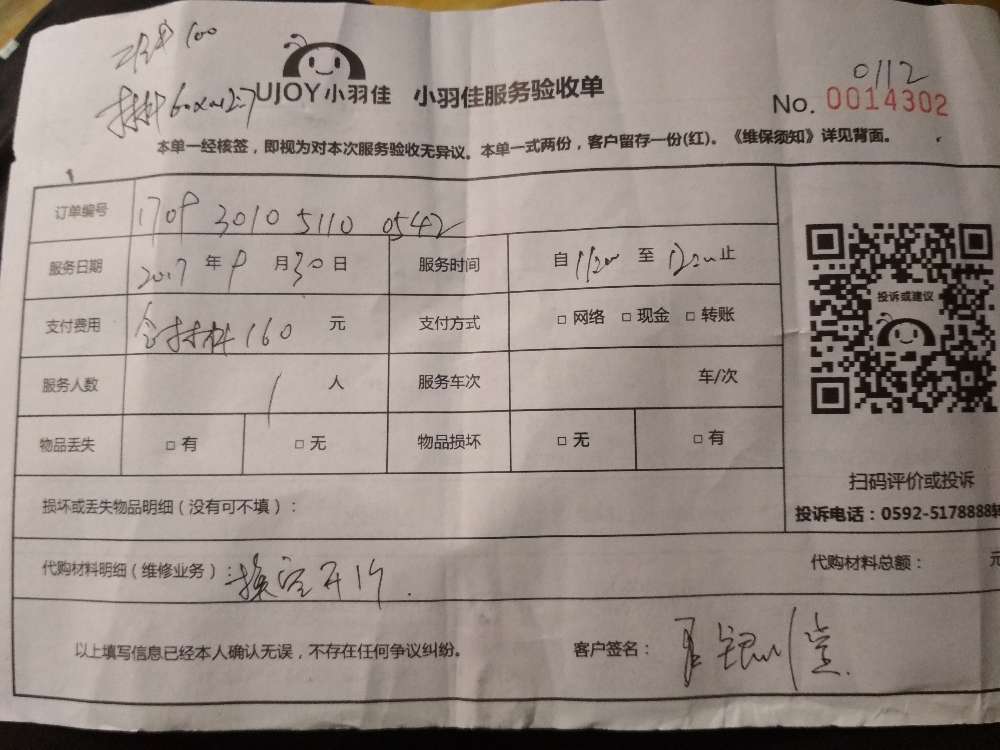 100
UJOY小羽佳 小羽佳服务验收单
0112
No. 0014302
本单一经核签，即视为对本次服务验收无异议。本单一式两份，客户留存一份(红)。《维保须知》详见背面。
订单编号 1709 3010 5110 0542
服务日期 2017 年 9 月 30 日 服务时间 自 至 止
支付费用 含材料 160 元 支付方式 □ 网络 □ 现金 □ 转账
服务人数 1 人 服务车次 车/次
物品丢失 □ 有 □ 无 物品损坏 □ 无 □ 有
投诉或建议
扫码评价或投诉
投诉电话：0592-5178888转
损坏或丢失物品明细（没有可不填）：
代购材料明细（维修业务）：换空开1个. 代购材料总额： 元
以上填写信息已经本人确认无误，不存在任何争议纠纷。 客户签名：